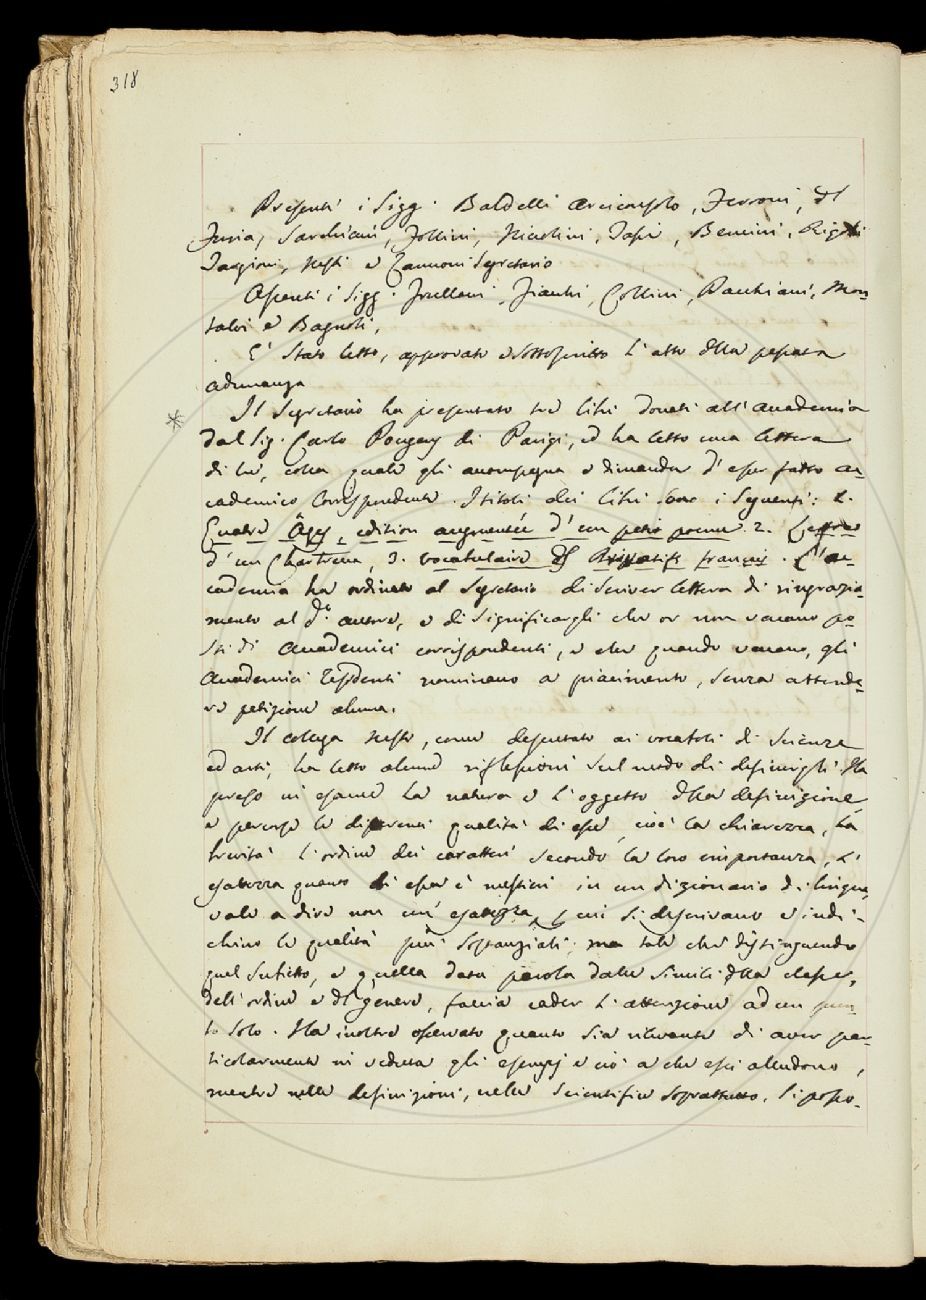 318
Presenti i Sigg. Baldelli Arciconsolo, Ferroni, Del
Furia, Sarchiani, Follini, Niccolini, Bencini, Rigoli
Targioni, Nesti e Zannoni Segretario
Assenti i Sigg. Frullani, Fiacchi, Collini, Pacchiani, Mon-
talvi e Bagnoli,
E' stato letto, approvato e sottoscritto l'atto della passata
adunanza
* Il Segretario ha presentato tre libri donati all'Accademia
dal Sig. Carlo Pougens di Parigi, ed ha letto una lettera
di lui, colla quale gli accompagna e dimanda d'esser fatto ac-
cademico Corrispondente. I titoli dei libri sono i seguenti: 1.
Quatre Âges, edition augmentée d'un petit poeme 2. Lettres
d'un Chartreux, 3. vocabulaire de Privatifs français. L'Ac-
cademia ha ordinato al Segretario di scriver lettera di ringrazia-
mento al d.º autore, e di significargli che or non vacano po-
sti di Accademici corrispondenti, e che quando vacano, gli
Accademici residenti nominano a piacimento, senza attende-
re petizione alcuna.
Il collega Nesti, come deputato ai vocaboli di Scienze
ed arti, ha letto alcune riflessioni sul modo di definirgli. Ha
preso in esame la natura e l'oggetto della definizione,
e percorse le differenti qualità di esse, cioè la chiarezza, la
brevità l'ordine dei caratteri secondo la loro importanza, l'
esattezza quanto di essa è mestieri in un dizionario di lingua,
vale a dire non un' esattezza, per cui si descrivano e indi-
chino le qualità più sostanziali; ma tale che distinguendo
quel subietto, e quella data parola dalle simili della classe,
dell'ordine e del genere, faccia cader l'attenzione ad un pun-
to solo. Ha inoltre osservato quanto sia rilevante di aver par-
ticolarmente in veduta gli esempj e ciò a che essi alludono,
mentre nelle definizioni, nelle scientifiche soprattutto, si posso-